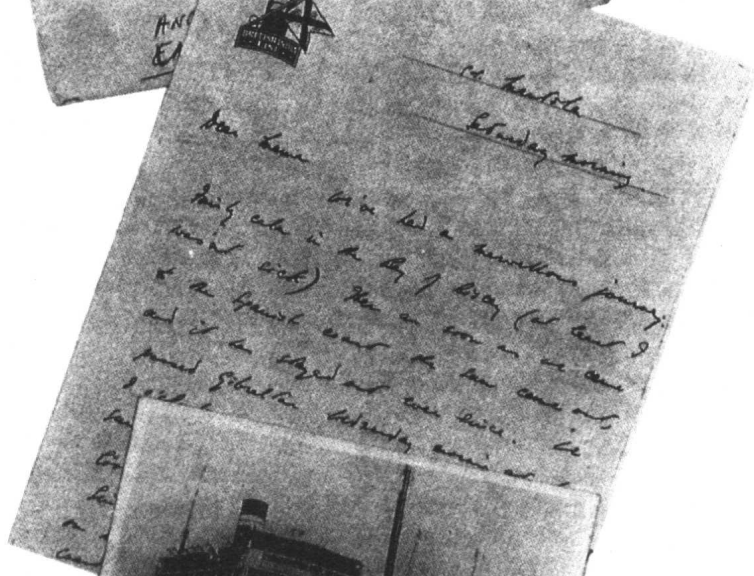 AN
E
BRITISH INDIA
ss Mantola
Saturday morning
Dear
We've had a marvellous journey.
Fairly calm in the Bay of Biscay (at least I
wasn't sick) Then as soon as we came
to the Spanish coast the sun came out,
and it has stayed out ever since. We
passed Gibraltar Saturday morning at